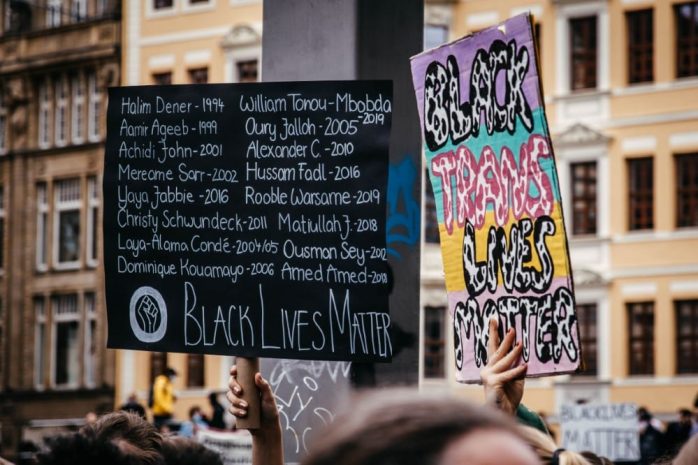 Halim Dener - 1994
Aamir Ageeb - 1999
Achidi John - 2001
Mereame Sarr - 2002
Yaya Jabbie - 2016
Christy Schwundeck - 2011
Laya-Alama Condé - 2004/05
Dominique Kouamayo - 2006
William Tonou-Mbobda - 2019
Oury Jalloh - 2005
Alexander C. - 2010
Hussam Fadl - 2016
Rooble Warsame - 2019
Matiullah J. - 2018
Ousman Sey - 2012
Amed Amed - 2018
BLACK LIVES MATTER
BLACK
TRANS
LIVES
MATTER
BLACK LIVES
MATTER